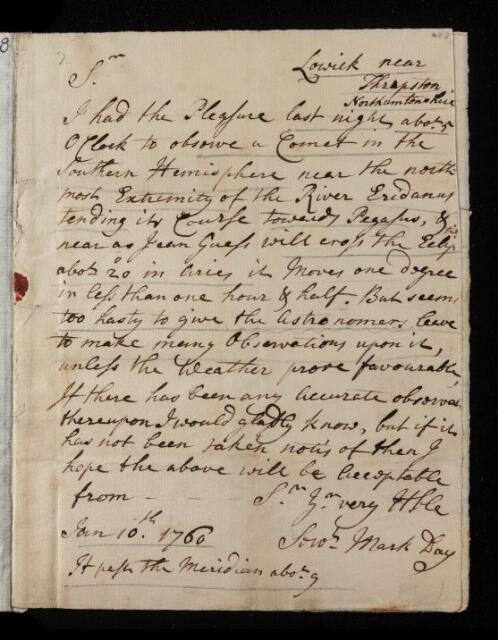 Lowick near
Thrapston
Northamtonshire
Sr
I had the Pleasure last night abot. 5
O Clock to observe a Comet in the
Southern Hemisphere near the north
most Extremity of the River Eridanus
tending its Course towards Pegasus, &
near as I can Guess will cross the Eclip
abot. 20 in Aries it Moves one degree
in less than one hour & half. But seems
too hasty to give the Astronomers leave
to make many Observations upon it,
unless the Weather prove favourable,
If there has been any accurate observa
thereupon I would gladly know, but if it
has not been taken notis of then I
hope the above will be Acceptable
from - - - Sr. Yr. very Hble
Jan 10.th 1760 Servt. Mark Day
It pass the Meridian abot. 9